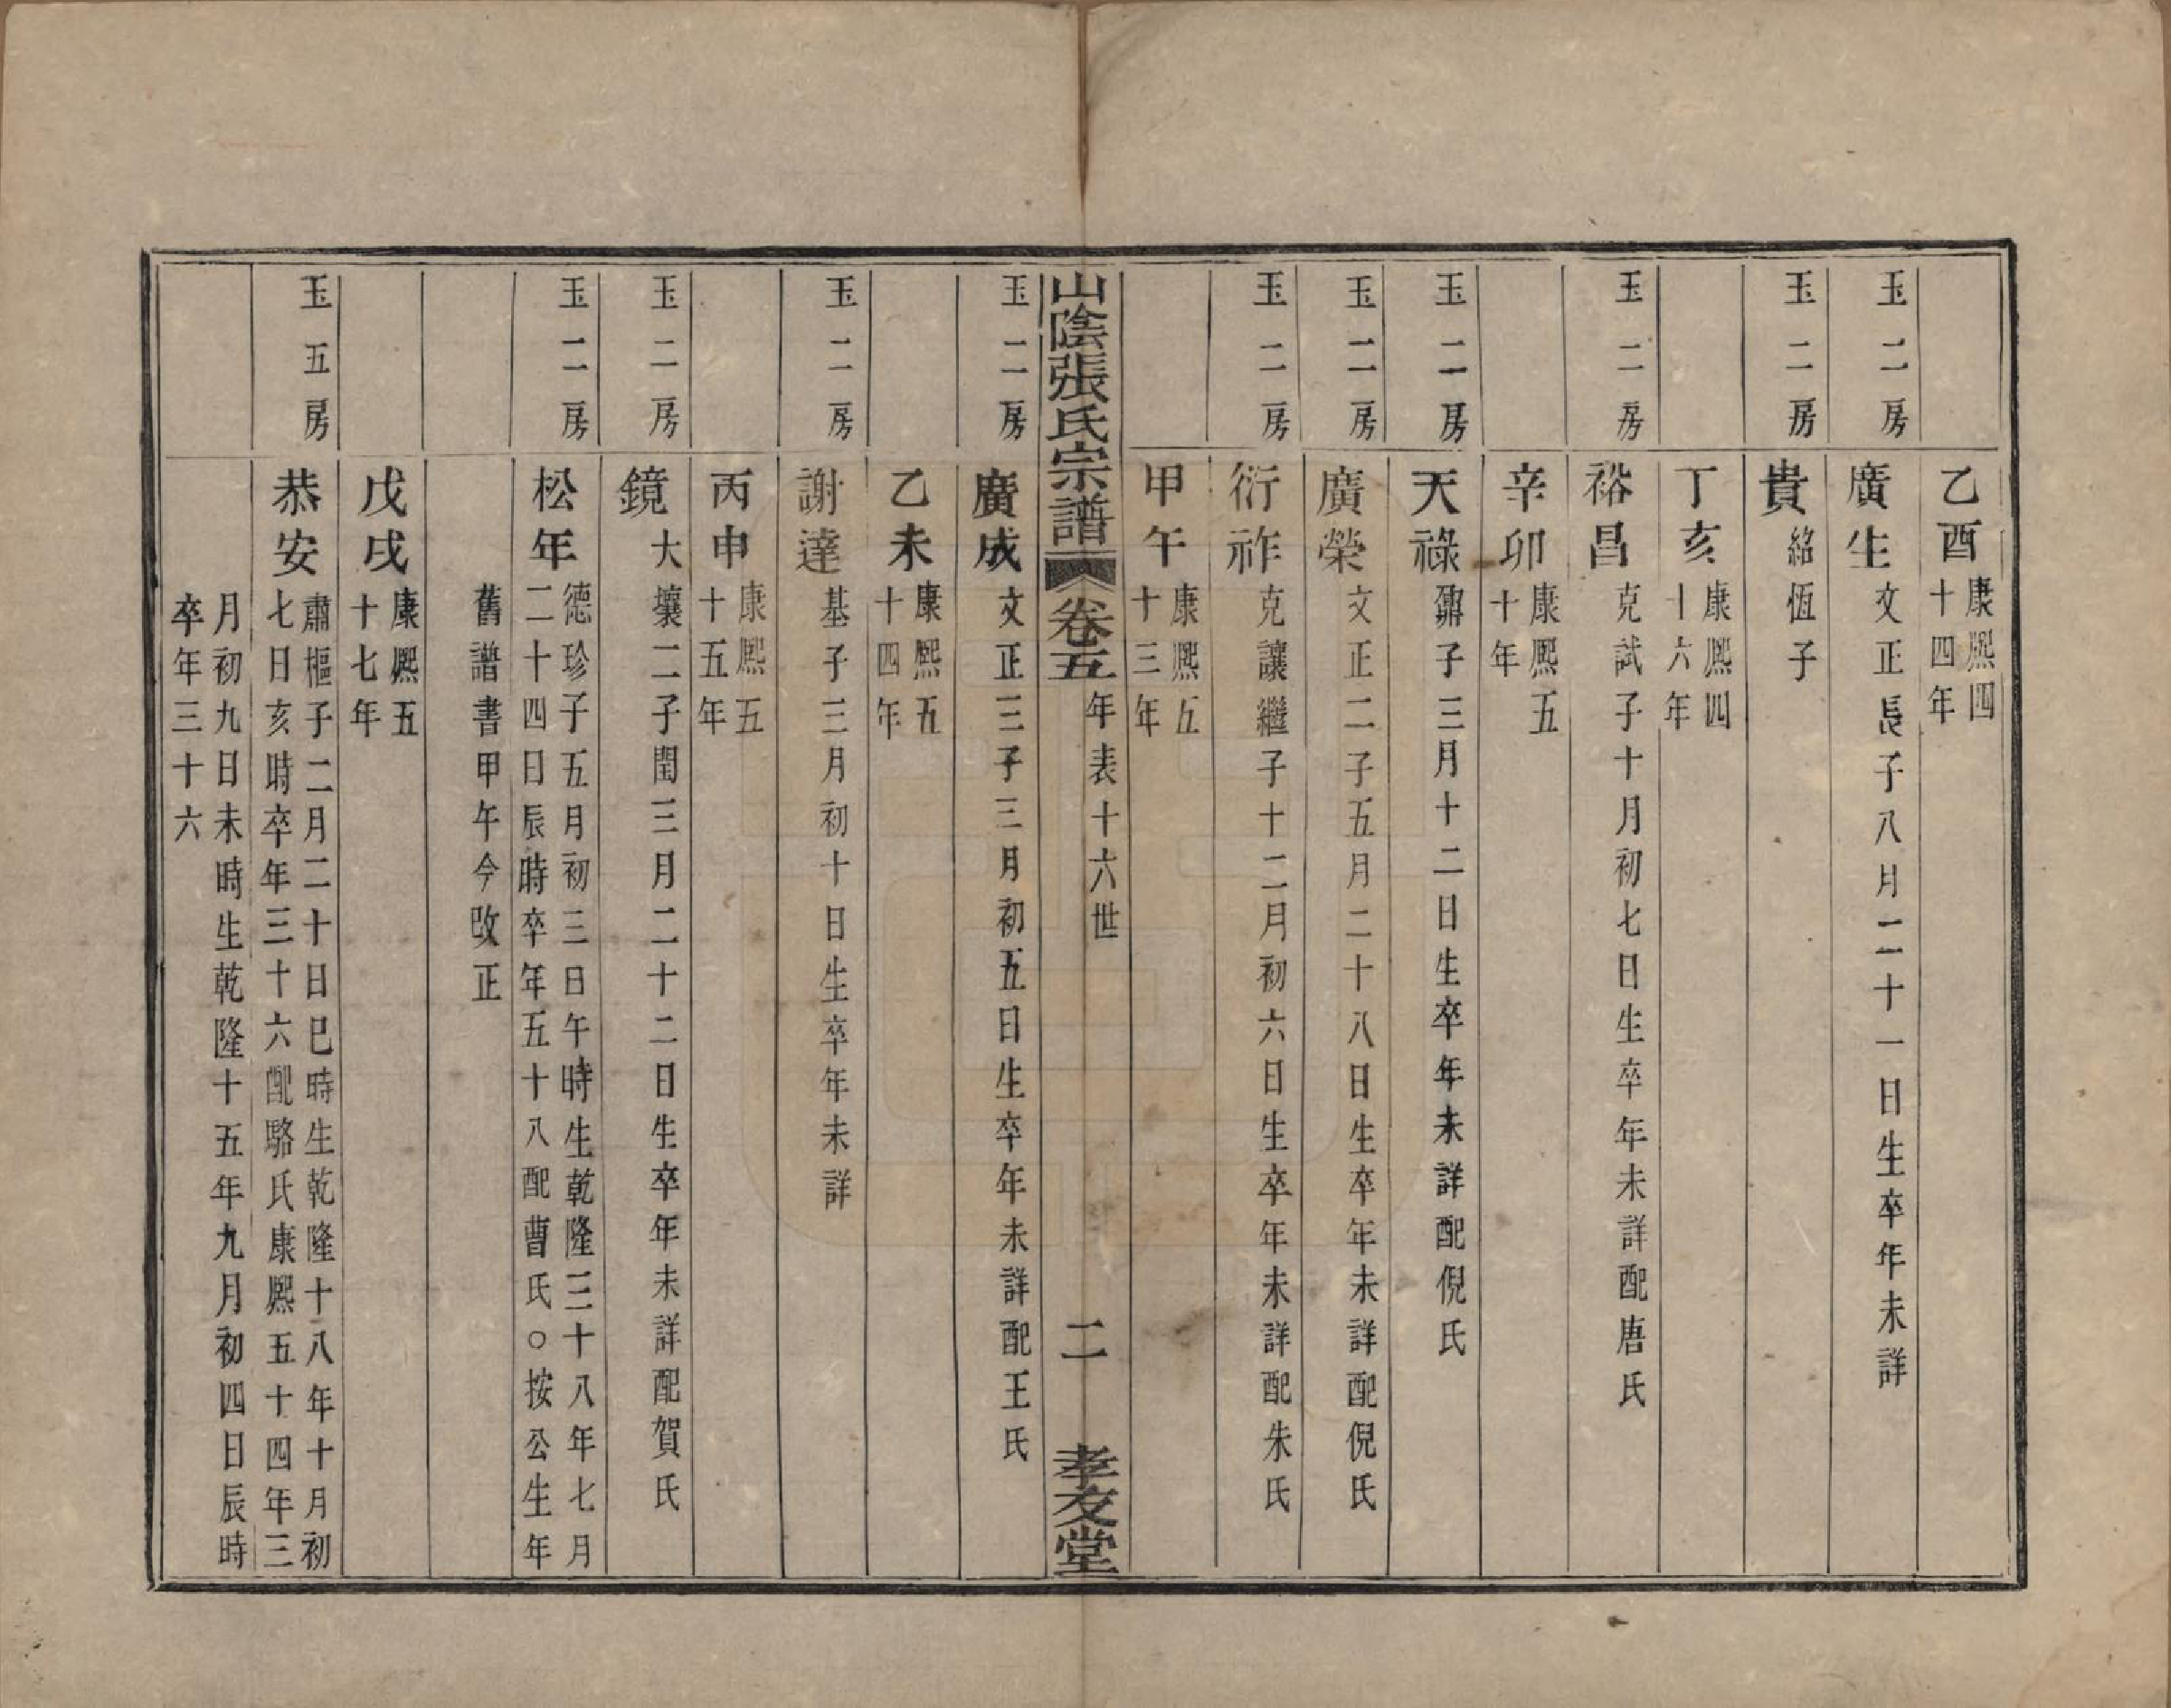 乙酉康熙四
十四年
玉二房 廣生文正長子八月二十一日生卒年未詳
玉二房 貴紹恆子
丁亥康熙四
十六年
玉二房 裕昌克試子十月初七日生卒年未詳配唐氏
辛卯康熙五
十年
玉二房 天祿鼐子三月十二日生卒年未詳配倪氏
玉二房 廣榮文正二子五月二十八日生卒年未詳配倪氏
玉二房 衍祚克讓繼子十二月初六日生卒年未詳配朱氏
甲午康熙五
十三年
山陰張氏宗譜 卷五 年表十六世 二 孝友堂
玉二房 廣成文正三子三月初五日生卒年未詳配王氏
乙未康熙五
十四年
玉二房 謝達基子三月初十日生卒年未詳
丙申康熙五
十五年
玉二房 鏡大壤二子閏三月二十二日生卒年未詳配賀氏
玉二房 松年德珍子五月初三日午時生乾隆三十八年七月
二十四日辰時卒年五十八配曹氏○按公生年
舊譜書甲午今改正
戊戌康熙五
十七年
玉五房 恭安肅樞子二月二十日巳時生乾隆十八年十月初
七日亥時卒年三十六配駱氏康熙五十四年三
月初九日未時生乾隆十五年九月初四日辰時
卒年三十六